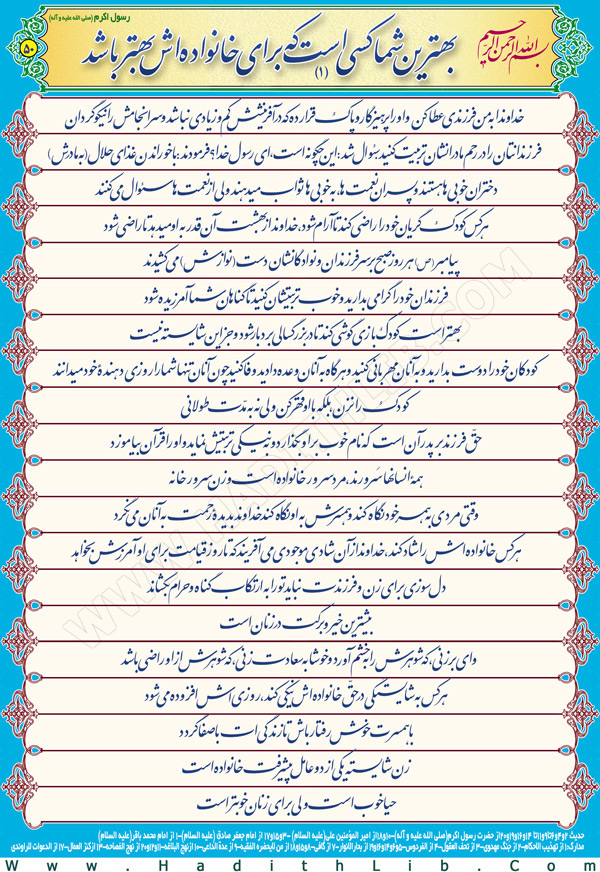 رسول اکرم (صلی الله علیه و آله)
بسم الله الرحمن الرحیم
۵۰
بهترین شما کسی است که برای خانواده اش بهتر باشد
(۱)
خداوندا به من فرزندی عطا کن و او را پرهیزکار و پاک قرار ده که در آفرینشش کم و زیادی نباشد و سرانجامش را نیکو گردان
فرزندانتان را در رحم مادرانشان تربیت کنید سئوال شد؛ این چگونه است، ای رسول خدا؟ فرمودند: با خوراندن غذای حلال (به مادرش)
دختران خوبی ها هستند و پسران نعمت ها، به خوبی ها ثواب میدهند ولی از نعمت ها سئوال می کنند
هر کس کودک گریان خود را راضی کند تا آرام شود، خداوند از بهشت آن قدر به او میدهد تا راضی شود
پیامبر (ص) هر روز صبح بر سر فرزندان و نوادگانشان دست (نوازش) می کشیدند
فرزندان خود را گرامی بدارید و خوب تربیتشان کنید تا گناهان شما آمرزیده شود
بهتر است کودک بازی گوشی کند تا در بزرگسالی بردبار شود و جز این شایسته نیست
کودکان خود را دوست بدارید و به آنان مهربانی کنید و هرگاه به آنان وعده دادید وفا کنید چون آنان تنها شما را روزی دهندهٔ خود میدانند
کودک را نزن، بلکه با او قهر کن ولی نه به مدت طولانی
حق فرزند بر پدر آن است که نام خوب بر او بگذارد و نیکی تربیتش نماید و او را قرآن بیاموزد
همهٔ انسانها سرورند، مرد سرور خانواده است و زن سرور خانه
وقتی مردی به همسر خود نگاه کند و همسرش به او نگاه کند خداوند بدیدهٔ رحمت به آنان می نگرد
هر کس خانواده اش را شاد کند، خداوند از آن شادی موجودی می آفریند که تا روز قیامت برای او آمرزش بخواهد
دل سوزی برای زن و فرزندت نباید تو را به ارتکاب گناه و حرام بکشاند
بیشترین خیر و برکت در زنان است
وای بر زنی، که شوهرش را بخشم آورد و خوشا به سعادت زنی، که شوهرش از او راضی باشد
هر کس به شایستگی در حق خانواده اش نیکی کند، روزی اش افزوده می شود
با همسرت خوش رفتار باش تا زندگی ات با صفا گردد
زن شایسته یکی از دو عامل پیشرفت خانواده است
حیا خوب است ولی برای زنان خوبتر است
WWW.HADITHLIB.COM
Www.HadithLib.Com